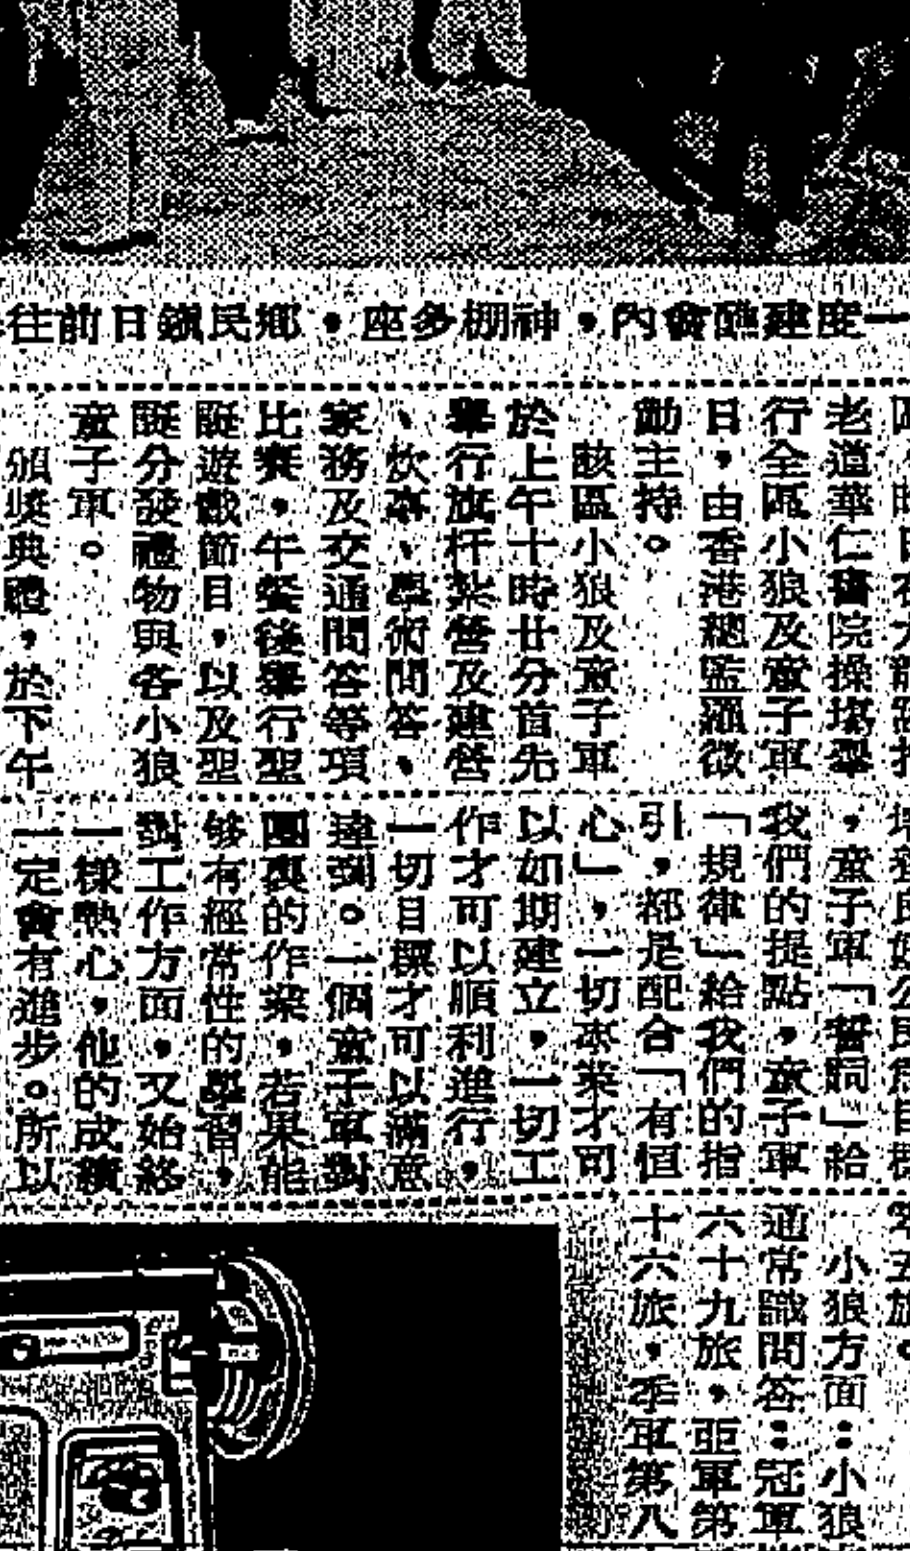 一度建醮會內，神棚多座，鄉民鎮日前往
老道華仁書院操場舉
行全區小狼及童子軍
日，由香港總監羅徵
勷主持。
該區小狼及童子軍
於上午十時廿分首先
舉行旗杆紮營及建營
、炊事、學術問答、
家務及交通問答等項
比賽，午餐後舉行聖
誕遊戲節目，以及聖
誕分發禮物與各小狼
童子軍。
頒獎典禮，於下午
，童子軍「誓詞」給
我們的提點，童子軍
「規律」給我們的指
引，都是配合「有恒
心」，一切事業才可
以如期建立，一切工
作才可以順利進行，
一切目標才可以滿意
達到。一個童子軍對
團裏的作業，若果能
够有經常性的學習，
對工作方面，又始終
一樣熱心，他的成績
一定會有進步。所以
小狼方面：小狼
通常識問答：冠軍
六十九旅，亞軍第
十六旅，季軍第八